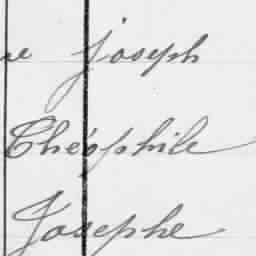 joseph
Théophile
Josephe